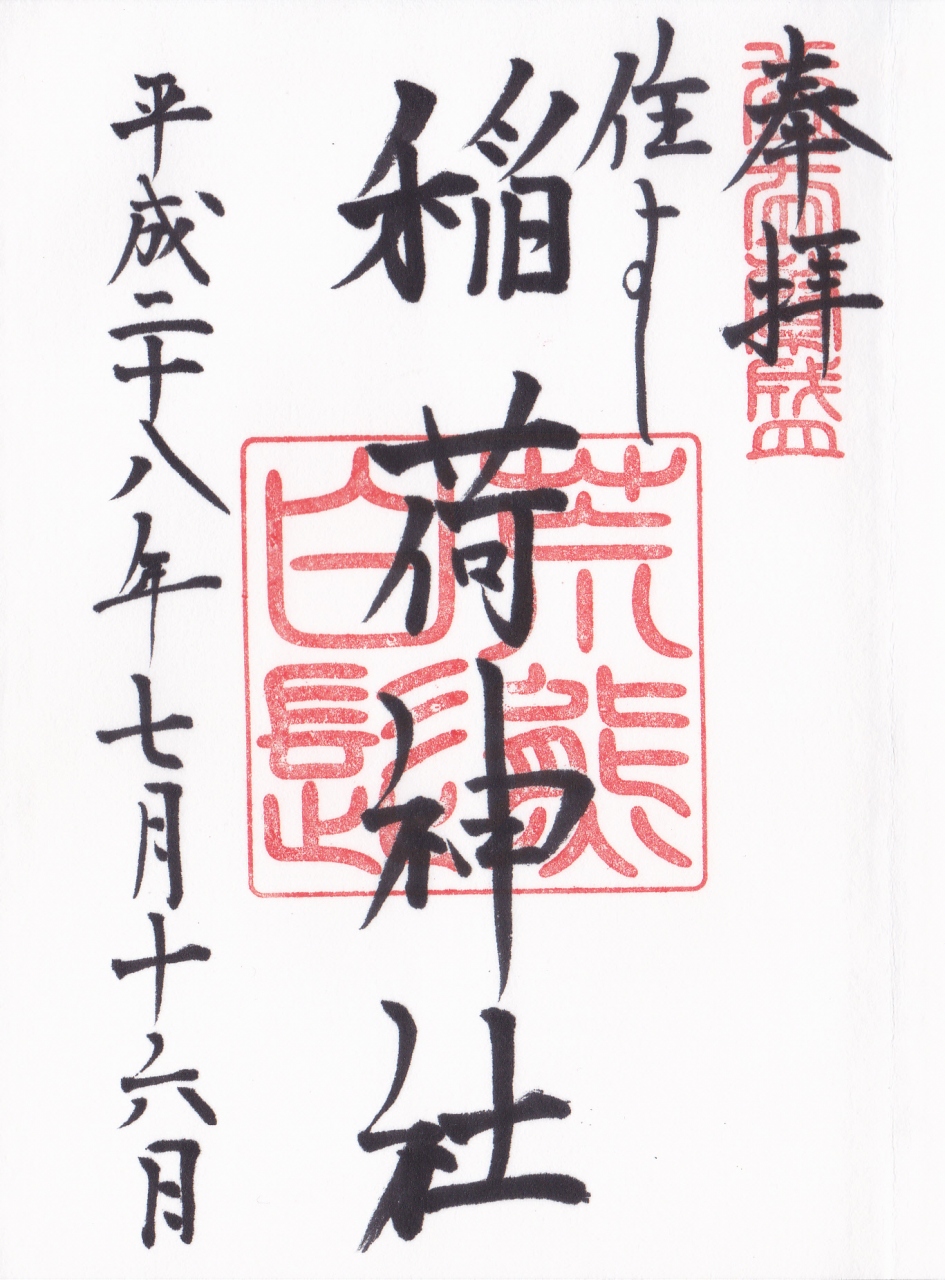 奉拝
住よし
稲荷神社
平成二十八年七月十六日
荒熊
白髭